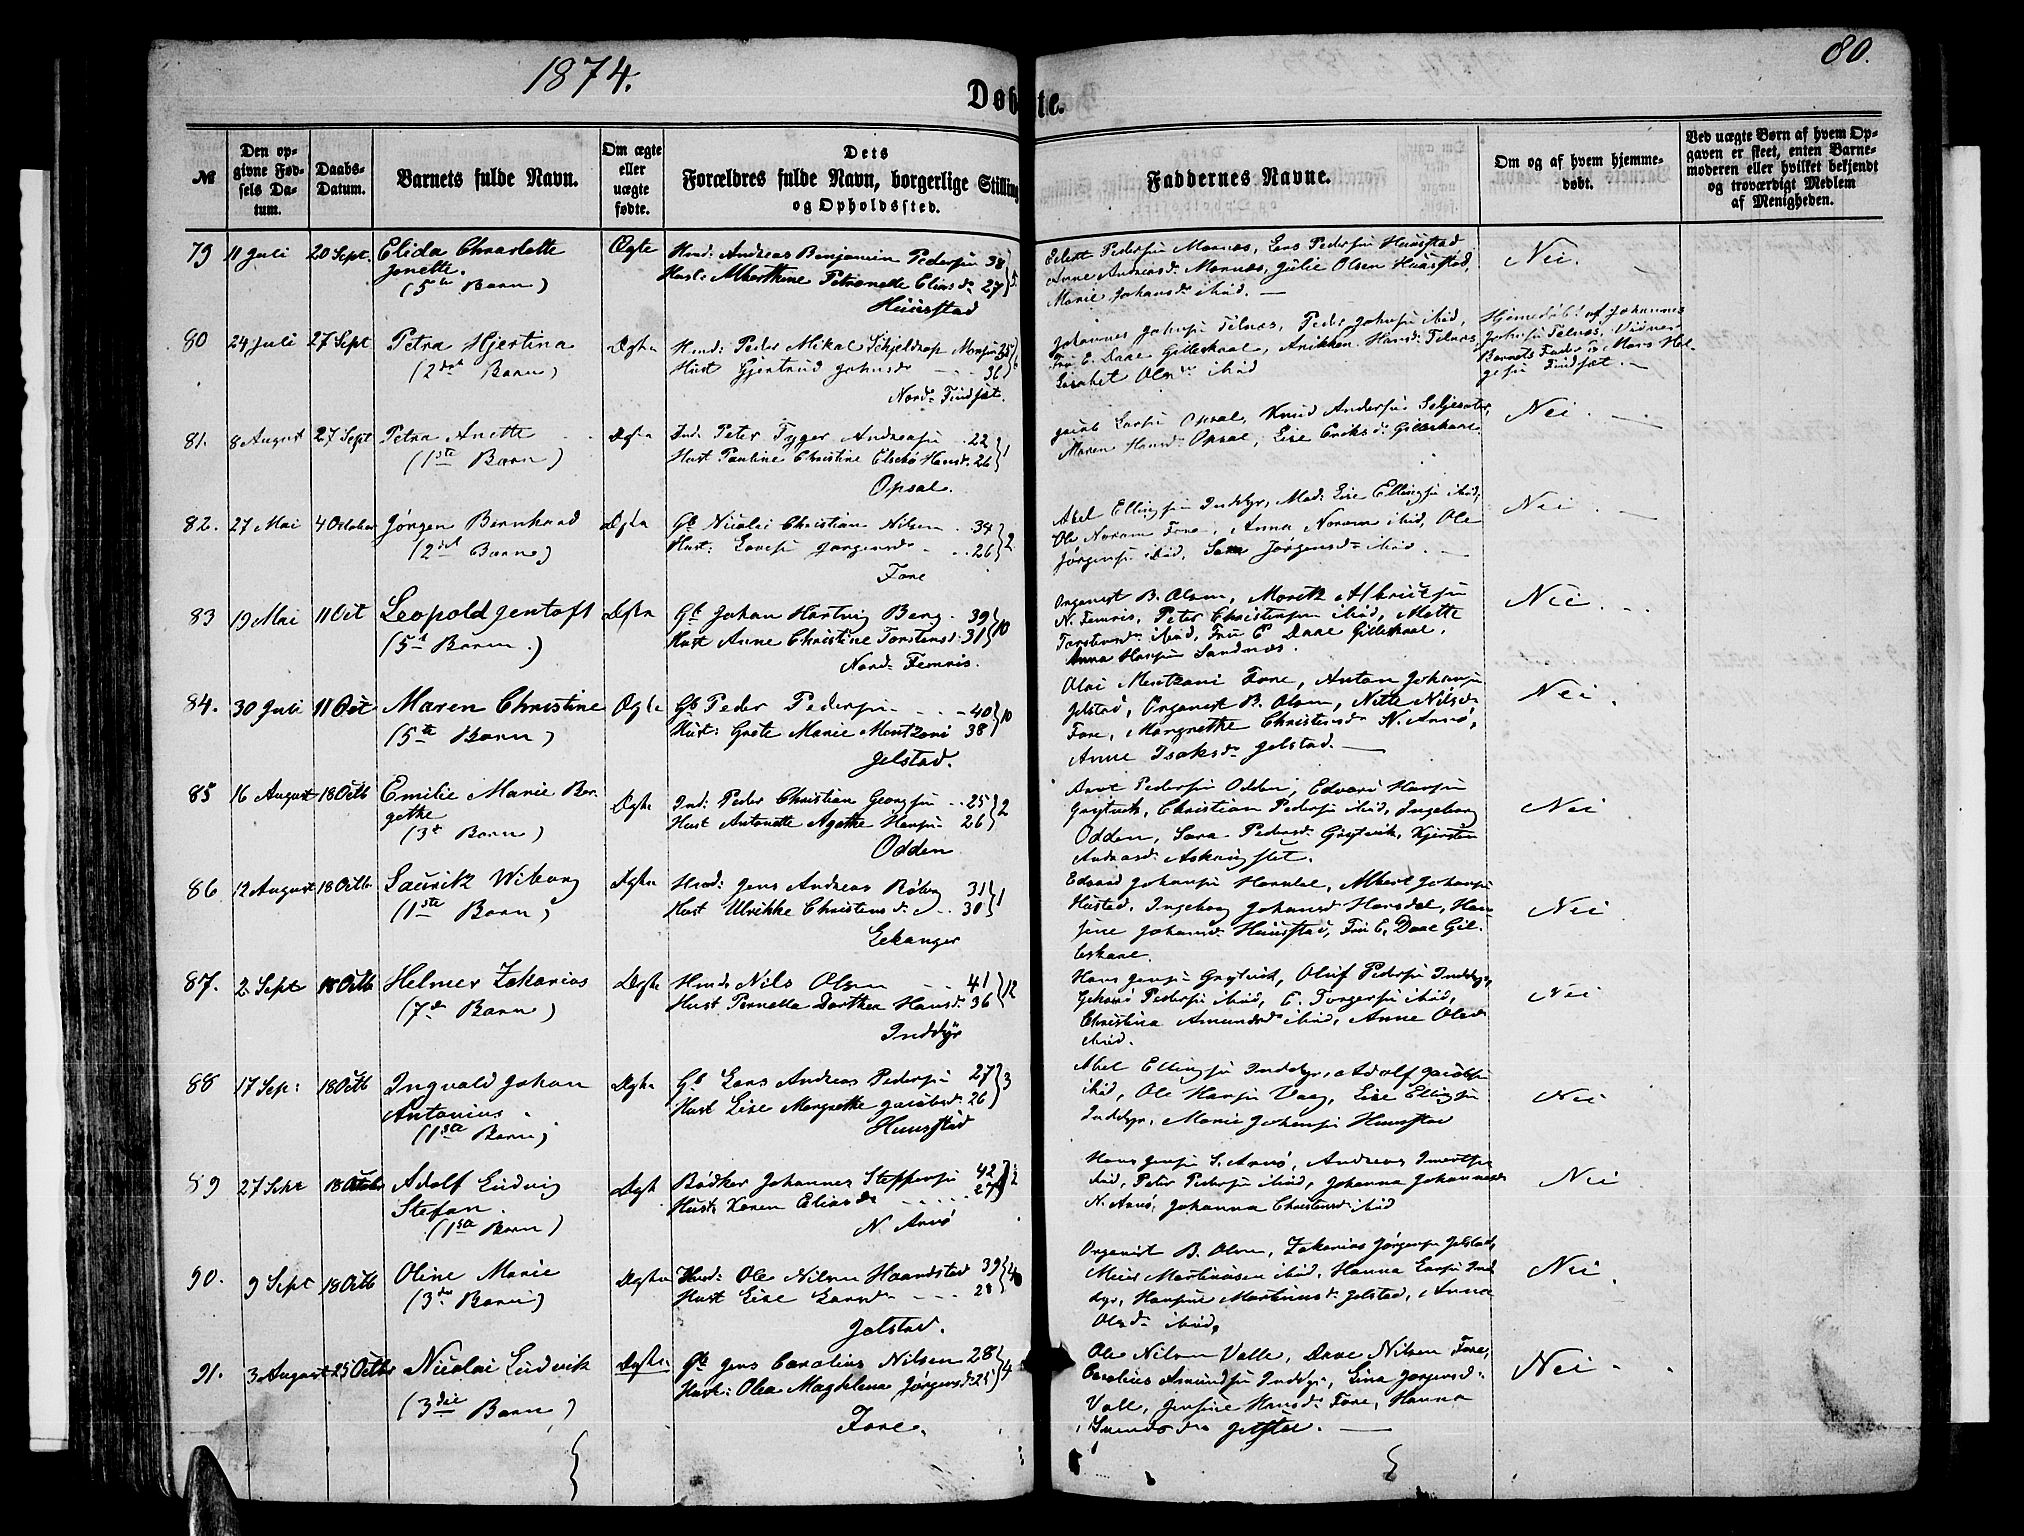 1874.
80.
Døbte.
№
Den opgivne Fødsels Datum.
Daabs-Datum.
Barnets fulde Navn.
Om ægte eller uægte fødte.
Dets Forældres fulde Navn, borgerlige Stilling og Opholdssted.
Faddernes Navne.
Om og af hvem hjemmedøbt.
Ved uægte Børn af hvem Opgaven er skeet, enten Barnemoderen eller hvilket bekjendt og troværdigt Medlem af Menigheden.
79 11 Juli 20 Sept. Elida Charlotte Ægte Hmd: Andreas Benjamin Pedersen 38
Jonette. Hust: Alberthine Petronelle Eliasd. 27
(5te Barn) Huusstad
Edevt Pedersen Mornæs, Lars Pedersen Huusstad
Anne Andreasd. Mornæs, Julie Olsen Huusstad,
Marie Johansd. ibid. —
Nei.
80 24 Juli 27 Sept Petra Hjertina Ægte Hmd: Peder Mikal Schjeldrop Monsen 25
(2det Barn) Hust Gjertrud Johnsd. 36
Nord. Findset.
Johannes Johnsen Felnæs, Peder Johnsen ibid,
Fru E. Daae Gilleskaal, Anikken Hansd. Felnæs,
Lisabet Olsn ibid
Hjemedøbt af Johannes
Johnsen Felnæs, Vidner
Barnets Fader og Hans Hel-
gesen Findset. —
81. 8 August 27 Sept Petra Anette Ægte Ind: Peter Tyger Andreasen 22 1
(1ste Barn) Hust Pauline Christine Elsebø Hansd. 26
Opsal.
Jacob Larsen Opsal, Knud Andersen Seljesæter,
Maren Hansd. Opsal, Lise Eriksd. Gilleskaal.
Nei. —
82. 27 Mai 4 October Jørgen Bernhard Ægte Gb Nicolai Christian Nilsen 34 2
(2det Barn) Hust: Lovise Jørgensd. 26
Fore
Abel Ellingsen Inddyr, Mad: Lise Ellingsen ibid,
Ole Noram Fore, Anna Noram ibid, Ole
Jørgensen ibid, Sara Jørgensd. ibid. —
Nei. —
83 19 Mai 11 Oct Leopold Jentoft Ægte Gb Johan Hartvig Berg 39 10
(5te Barn.) Hust Anne Christine Torstensd. 31
Nord. Femris.
Organist B. Olsen, Moritz Albrigtsen
N. Femris, Peter Christensen ibid, Mette
Torstensd. ibid, Fru E Daae Gilleskaal.
Anna Hansen Sandnæs.
Nei. —
84. 30 Juli 11 Oct Maren Christine Ægte Gb Peder Pedersen 40 10
(5te Barn) Hust: Grete Marie Mentzoni 38
Jelstad.
Olai Mentzoni Fore, Anton Johansen
Jelstad, Organist B. Olsen, Nette Nilsd.
Fore, Margrethe Christensd. N. Arnø,
Anne Isaksd. Jelstad. —
Nei.
85 16 August 18 Octb Emilie Marie Ber- Ægte Ind: Peder Christian Georgsen 25 2
gethe Hust Antonette Agathe Hansen 26
(3de Barn) Odden
Arnt Pedersen Odden, Edvard Hansen
Grytvik, Christian Pedersen ibid, Ingeborg
Odden, Sara Pedersd. Grytvik, Kjersten
Andreasd.
Nei
86 12 August 18 Octb Lauritz Wiborg Ægte Hmd: Jens Andreas Røberg 31 1
(1ste Barn) Hust Ulrikke Christensd. 30
Eekanger
Edvard Johansen Horsdal, Albert Johansen
Hustad, Ingeborg Johansd Horsdal, Han-
sine Johansd. Huusstad, Fru E. Daae Gil-
leskaae.
Nei
87. 2 Sept 18 Octb Helmer Zakarias Ægte Hmd: Nils Olsen 41 12
(7de Barn) Hust Pernella Dorthea Hansd. 36
Inddyr
Hans Jensen Grytvik, Oluf Pedersen Inddyr,
Johan Pedersen ibid, C. Torgersen ibid,
Christina Amundsd. ibid, Anne Olsd.
ibid.
Nei
88 17 Sep: 18 Octb Ingvald Johan Ægte Gb Lars Andreas Pedersen 27 3
Antonius. Hust Lise Margrethe Jacobsd. 26
(1ste Barn) Huusstad
Abel Ellingsen Inddyr, Adolf Jacobsen
ibid, Ole Hansen Vaag, Lise Ellingsen
Inddyr, Marie Johansen Huusstad
Nei
89 27 Sept 18 Octbr Adolf Ludvig Ægte Bødker Johannes Steffensen 42 2
Stefan. Hust: Karen Eliasd. 27
(1ste Barn) N. Arnø
Hans Jensen S. Arnø, Andreas
ibid, Peter Pedersen ibid, Johanna Johannesd.
N. Arnø, Johanna Christensd. ibid
Nei
90. 9 Sept 18 Octb Oline Marie Ægte Hmd: Ole Nilsen Haandstad 39
(3de Barn) Hust Lise Larsd. 28
Jelstad.
Organist B. Olsen, Zakarias Jørgensen Jelstad,
Meier Martinussen ibid, Hanna Larsen Ind
dyr, Hansine Martinusd. Jelstad, Anna
Olsd. ibid,
Nei.
91. 3 August 25 Octbr Nicolai Ludvik Ægte Gb Jens Carolius Nilsen 28 4
(3die Barn) Hust: Olea Magdelena Jørgensd. 25
Fore.
Ole Nilsen Valle, Daae Nilsen Fore,
Carolius Amundsen Inddyr, Lina Jørgensd.
Valle, Jensine Hansd. Fore, Hanna
Nei.